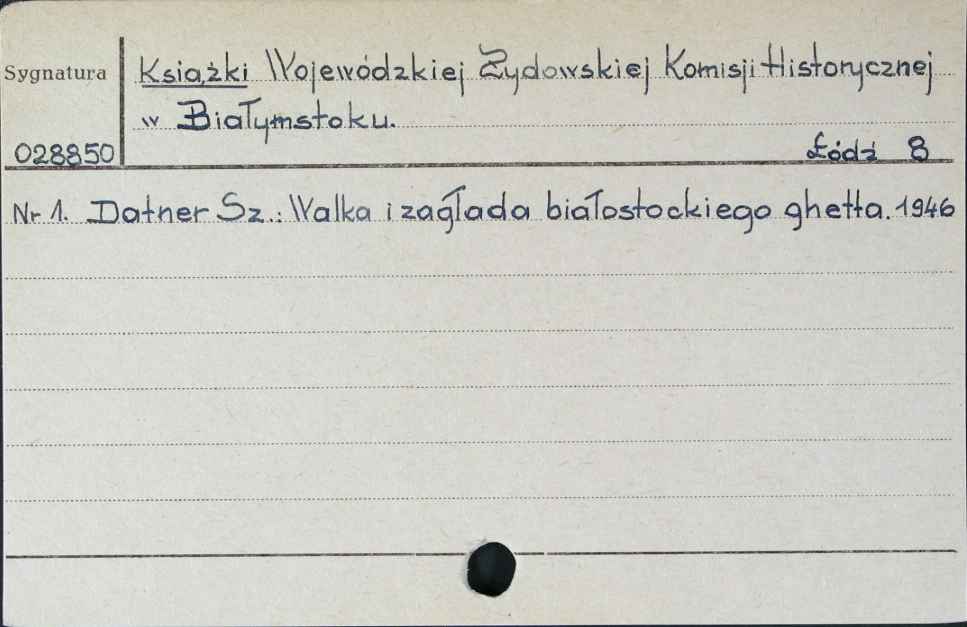 Sygnatura Książki Wojewódzkiej Żydowskiej Komisji Historycznej
w Białymstoku.
028850 Łódź 8
Nr 1. Datner Sz.: Walka i zagłada białostockiego ghetta. 1946